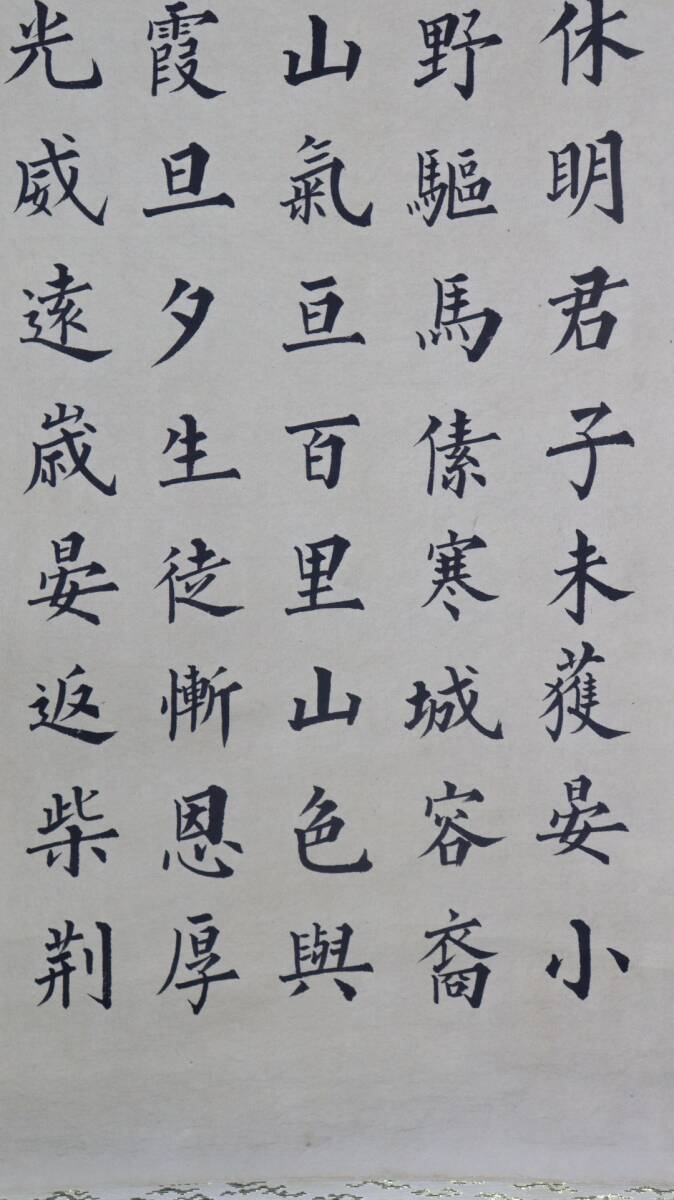 休明君子未獲晏小
野驅馬傃寒城容裔
山氣亘百里山色與
霞旦夕生徒慚恩厚
光威遠嵗晏返柴荊